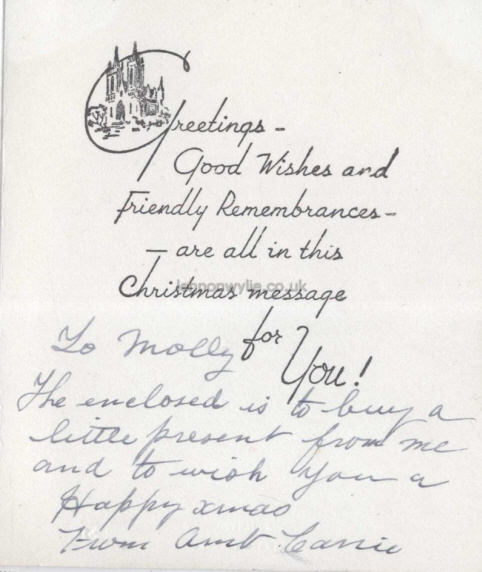 Greetings -
Good Wishes and
Friendly Remembrances -
- are all in this
lennonwylie.co.uk
Christmas message
for
You!
To Molly
The enclosed is to buy a
little present from me
and to wish you a
Happy xmas
From Aunt Carrie